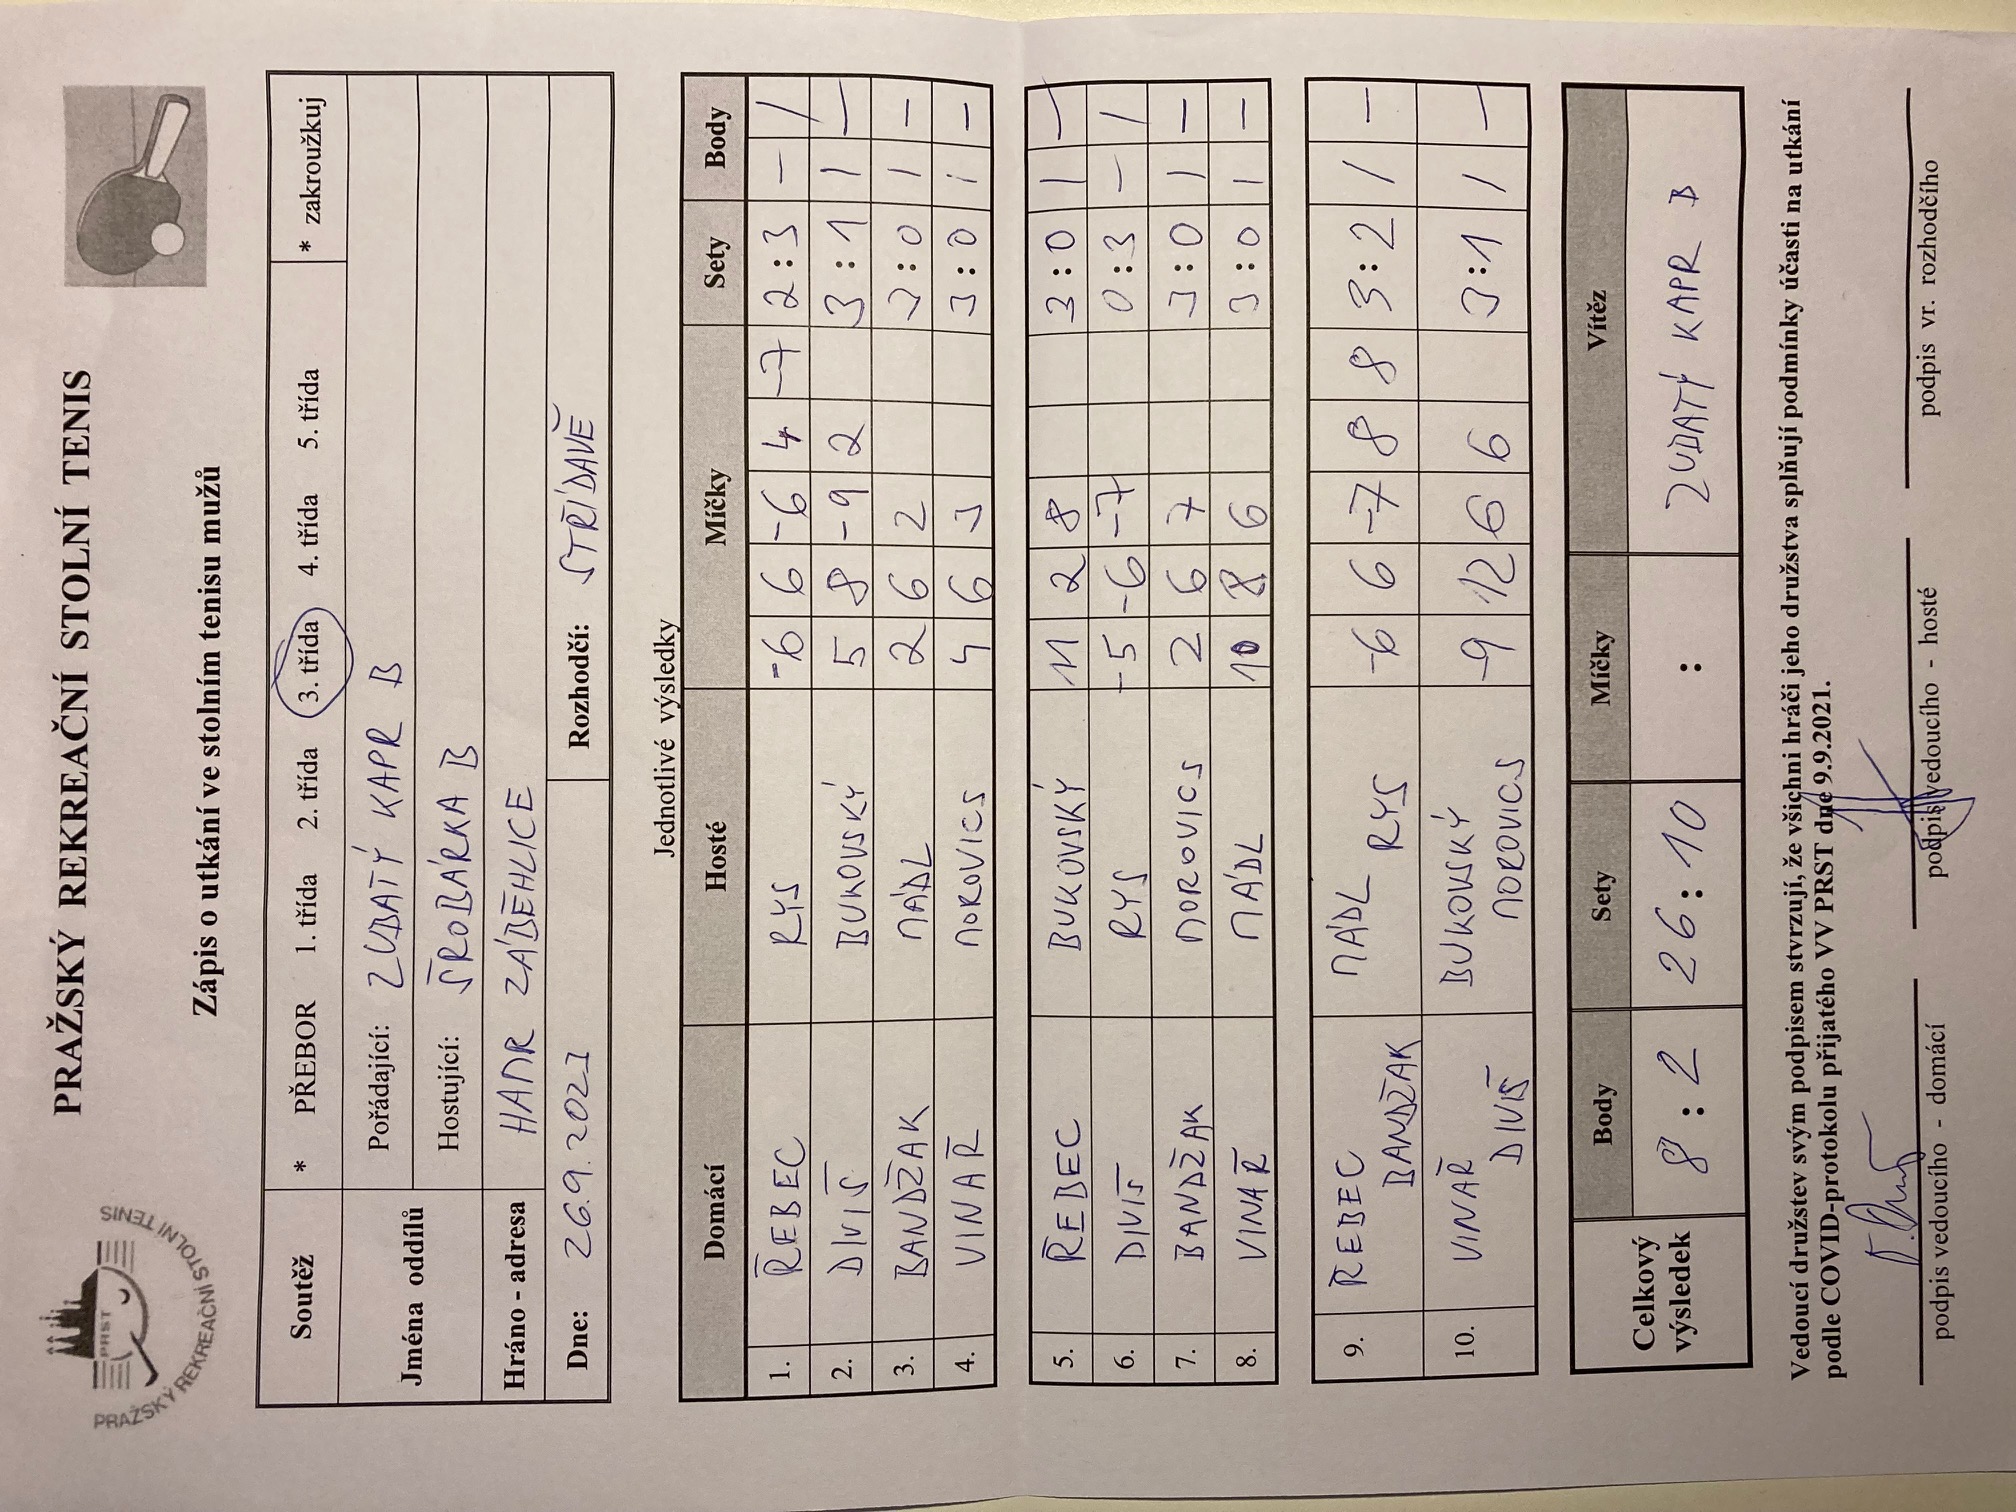 PRAŽSKÝ REKREAČNÍ STOLNÍ TENIS
PRST
PRAŽSKÝ REKREAČNÍ STOLNÍ TENIS
Zápis o utkání ve stolním tenisu mužů
Soutěž * PŘEBOR 1. třída 2. třída 3. třída 4. třída 5. třída * zakroužkuj
Jména oddílů Pořádající: ZUBATÝ KAPR B
Hostující: ŠROBÁRKA B
Hráno - adresa HAMR ZÁBĚHLICE
Dne: 26.9.2021 Rozhodčí: STŘÍDAVĚ
Jednotlivé výsledky
Domácí Hosté Míčky Sety Body
1. ŘEBEC RYS -6 6 -6 4 -7 2:3 - 1
2. DIVIŠ BUKOVSKÝ 5 8 -9 2 3:1 1 -
3. BANDŽAK MÁDL 2 6 2 3:0 1 -
4. VINAŘ MOROVICS 4 6 3 3:0 1 -
5. ŘEBEC BUKOVSKÝ 11 2 8 3:0 1 -
6. DIVIŠ RYS -5 -6 -7 0:3 - 1
7. BANDŽAK MOROVICS 2 6 7 3:0 1 -
8. VINAŘ MÁDL 10 8 6 3:0 1 -
9. ŘEBEC BANDŽAK MÁDL RYS -6 6 -7 8 8 3:2 1 -
10. VINAŘ DIVIŠ BUKOVSKÝ MOROVICS -9 12 6 6 3:1 1 -
Celkový výsledek Body Sety Míčky Vítěz
8:2 26:10 : ZUBATÝ KAPR B
Vedoucí družstev svým podpisem stvrzují, že všichni hráči jeho družstva splňují podmínky účasti na utkání
podle COVID-protokolu přijatého VV PRST dne 9.9.2021.
podpis vedoucího - domácí podpis vedoucího - hosté podpis vr. rozhodčího